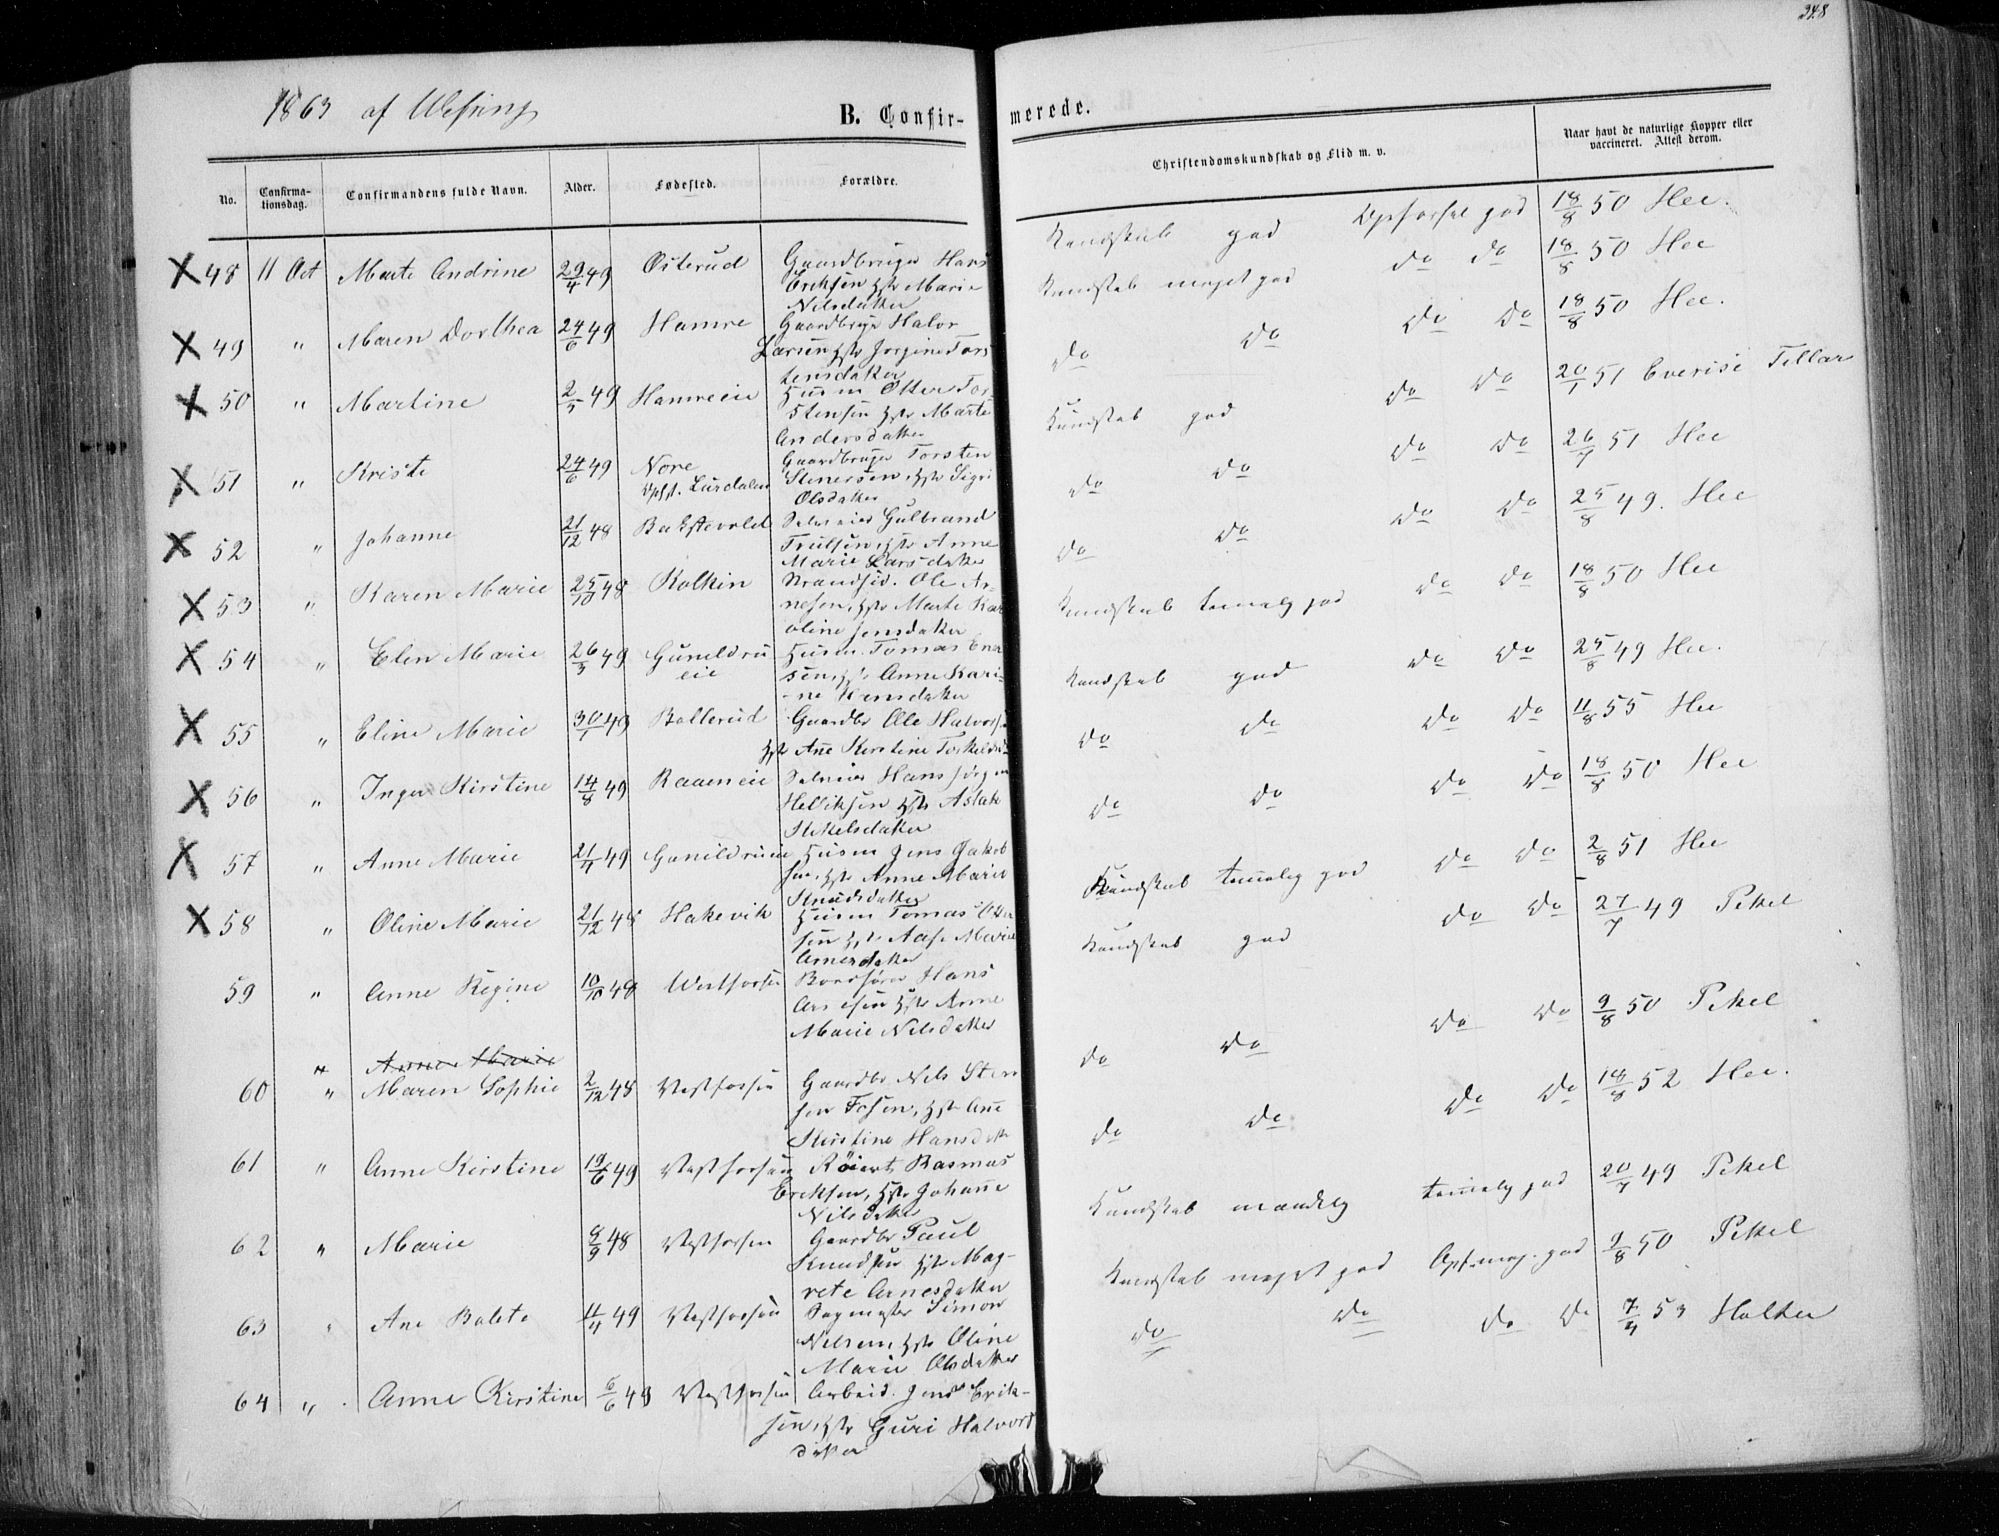 248
1863 af
B. Confirmerede.
No. Confirmationsdag. Confirmandens fulde Navn. Alder. Fødested. Forældre. Christendomskundskab og Flid m. v. Naar havt de naturlige Kopper eller vaccineret. Attest derom.
48 11 Oct Marte Andrine 29/4 49 Østerud Gaardbruger Hans
Eriksen, Hstr Marie
Nilsdatter
Kundskab god Opførsel god 18/8 50 Hee.
49 " Maren Dorthea 24/6 49 Hamre Gaardbrugr Halvor
Larsen Hstr Jorgine Tors
tensdatter
Kundskab meget god do do 18/8 50 Hee
50 " Martine 2/5 49 Hamreeie Husm Otter Tor
stensen Hstr Marte
Andersdatter
do do do do 18/8 50 Hee.
51 " Kristi 24/6 49 Nore
Opfst. Lurdalen
Gaardbruger Torsten
Stenersen, Hstr Sigri
Olsdatter
Kundskab god do do 20/1 51 Tillar
52 " Johanne 21/12 48 Gulbrand
Trulsen, Hstr Anne
Marie Larsdatter
do do do do 26/7 51 Hee
53 " Karen Marie 25/10 48 Kolkin Strandsid. Ole Ar
nesen, Hstr Marte Kar
oline Jensdatter
do do do do 25/8 49. Hee
54 " Elen Marie 26/3 49 Gunildru
eie
Husm. Tomas
sen, Hstr Anne Kari
ne
Kundskab temelig god do do 18/8 50 Hee
55 " Eline Marie 30/1 49 Bollerud Gaardbr Ole Halvors
Hstr Ane Kirstine
Kundskab god do do 25/8 49 Hee.
56 " Inger Kirstine 14/8 49 Raaeneie Hans Jörgen
Helliksen Hstr Aslak
do do do do 11/8 55 Hee
57 " Anne Marie 21/4 49 Gunildrueie Husm Jens Jakob
sen, Hstr Anne Marie
Knudsdatter
do do do do 18/8 50 Hee
58 " Oline Marie 21/12 48 Hakevik Husm Tomas Otter
sen Hstr Aase Marie
Arnesdatter
Kundskab temelig god do do 2/8 51 Hee
59 " Anne Regine 10/10 48 Westfossen Hans
Hstr Anne
Marie Nilsdatter
Kundskab god do do 27/7 49 Pihel
" Anne Marie
60 " Maren Sophie 2/12 48 Vestfossen Gaardbr Nils Sten
sen Fosen, Hstr Ane
Kirstine Hansdtr
do do do do 9/8 50 Pihel
61 " Anne Kirstine 19/6 49 Vestfossen Rasmus
Eriksen, Hstr Johane
Nilsdatter
do do do do 18/8 52 Hee.
62 " Marie 8/9 48 Vestfossen Gaardbr Paul
Knudsen Hstr Mag-
rete Arnesdatter
Kundskab maadelig temelig god 20/7 49 Pihel
63 " Ane Bolete 11/4 49 Vestfossen Sagmester Simon
Nilsen, Hstr Oline
Marie Olsdatter
Kundskab meget god Opf. meg. god 9/8 50 Pihel
64 " Anne Kirstine 6/6 49 Vestfossen Arbeid. Jens Erik-
sen, Hstr Guri Halvors
datter
do do do do 7/4 53 Holter